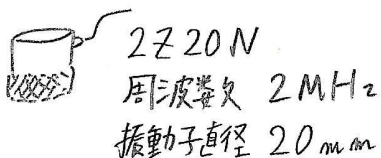 2Z20N
周波数 2MHz
振動子直径 20mm